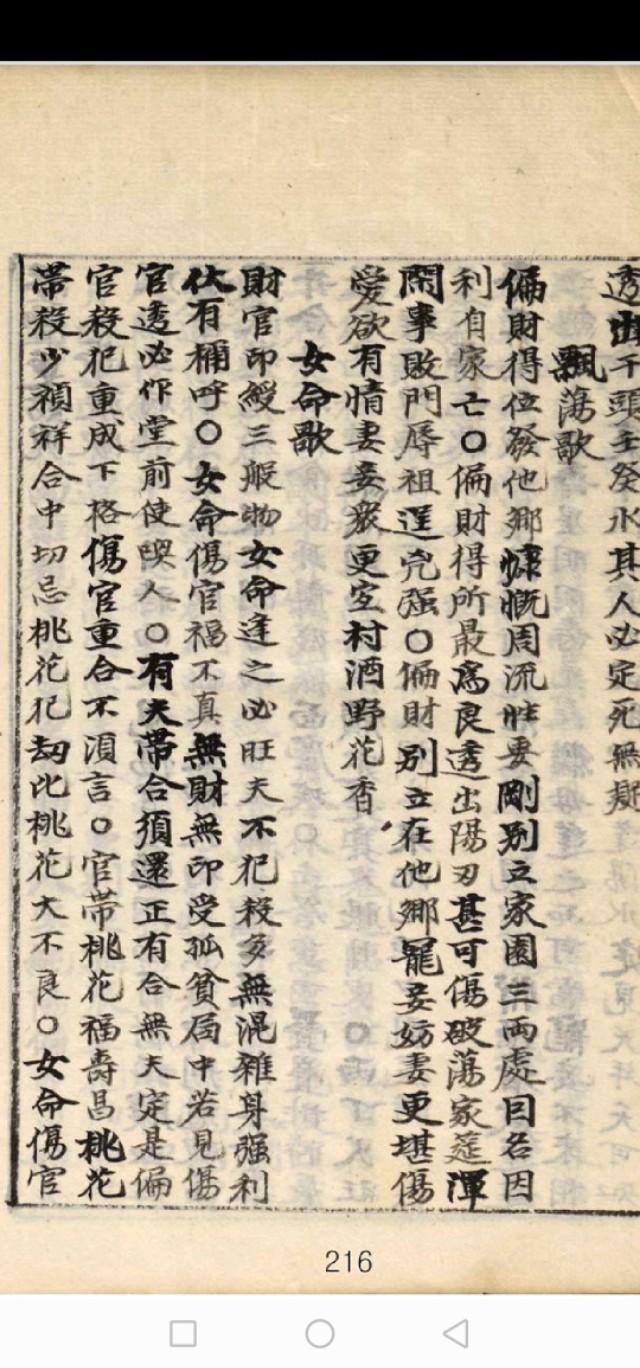 透出干頭壬癸水其人必定死無疑
飄蕩歌
偏財得位發他鄉慷慨周流性要剛別立家園三兩處因名因
利自家亡○偏財得所最爲良透出陽刃甚可傷破蕩家筵渾
鬧事敗門辱祖逞兇强○偏財別立在他鄉寵妾妨妻更堪傷
愛欲有情妻妾衆更宜村酒野花香
女命歌
財官印綬三般物女命逢之必旺夫不犯殺多無混雜身强利
伏有稱呼○女命傷官福不真無財無印受孤貧局中若見傷
官透必作堂前使喚人○有夫帶合須還正有合無夫定是偏
官殺犯重成下格傷官重合不須言○官帶桃花福壽昌桃花
帶殺少禎祥合中切忌桃花犯刼比桃花大不良○女命傷官
216